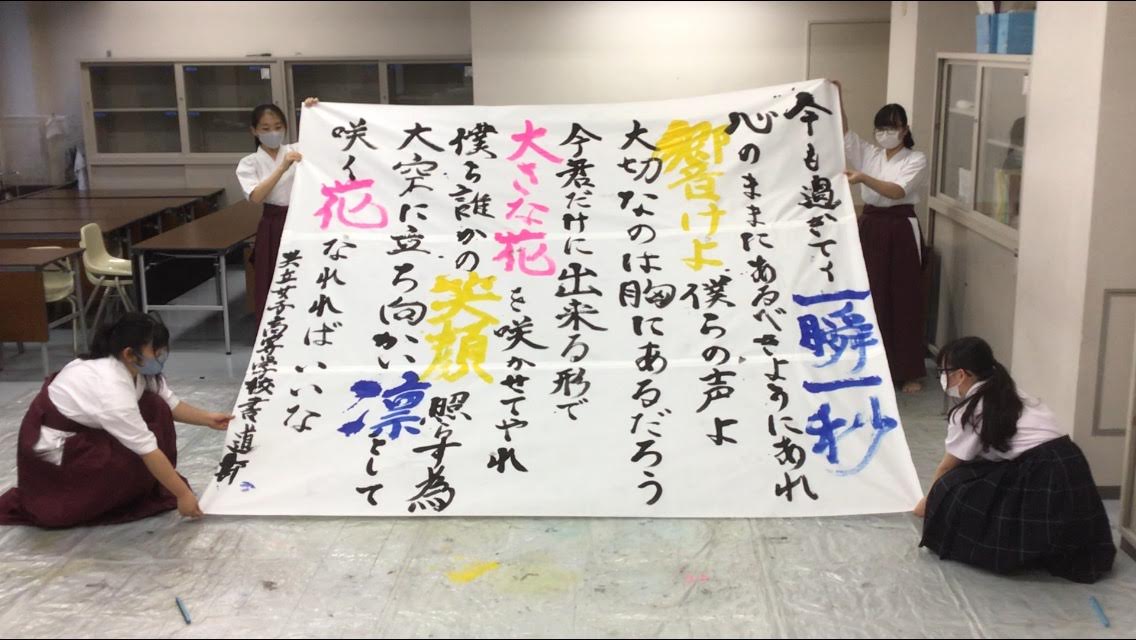 今も過ぎてく一瞬一秒
心のままにあるべきようにあれ
響けよ僕らの声よ
大切なのは胸にあるだろう
今君だけに出来る形で
大きな花を咲かせてやれ
僕ら誰かの笑顔照らす為
大空に立ち向かい凛として
咲く花なれればいいな
共立女子高等学校書道部